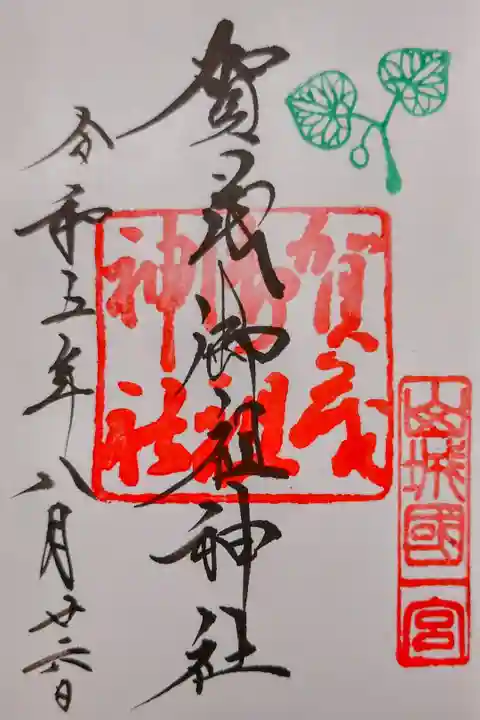 山城國一宮
賀茂御祖神社
賀茂御祖神社
令和五年八月廿六日